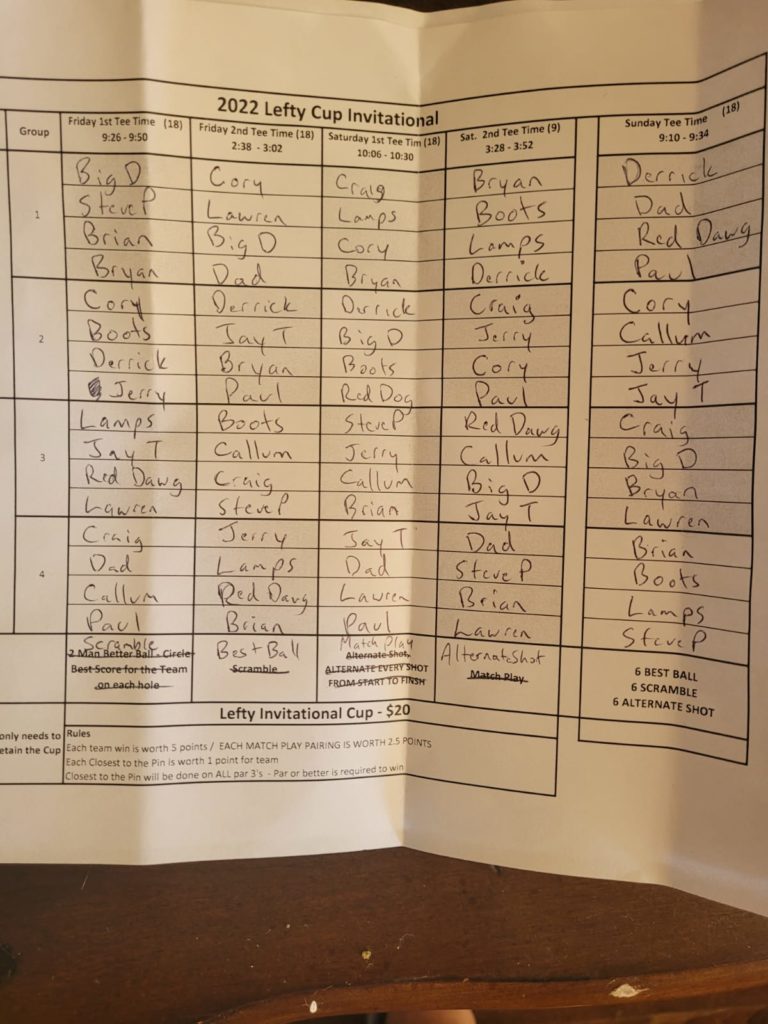 2022 Lefty Cup Invitational
Group Friday 1st Tee Time (18) Friday 2nd Tee Time (18) Saturday 1st Tee Tim (18) Sat. 2nd Tee Time (9) Sunday Tee Time (18)
9:26 - 9:50 2:38 - 3:02 10:06 - 10:30 3:28 - 3:52 9:10 - 9:34
1
Big D Cory Craig Bryan Derrick
Steve P Lawren Lamps Boots Dad
Brian Big D Cory Lamps Red Dawg
Bryan Dad Bryan Derrick Paul
2
Cory Derrick Derrick Craig Cory
Boots Jay T Big D Jerry Callum
Derrick Bryan Boots Cory Jerry
Jerry Paul Red Dog Paul Jay T
3
Lamps Boots Steve P Red Dawg Craig
Jay T Callum Jerry Callum Big D
Red Dawg Craig Callum Big D Bryan
Lawren Steve P Brian Jay T Lawren
4
Craig Jerry Jay T Dad Brian
Dad Lamps Dad Steve P Boots
Callum Red Dawg Lawren Brian Lamps
Paul Brian Paul Lawren Steve P
Scramble Best Ball Match Play Alternate Shot
2 Man Better Ball - Circle Scramble Alternate Shot, Match Play 6 BEST BALL
Best Score for the Team ALTERNATE EVERY SHOT 6 SCRAMBLE
on each hole FROM START TO FINSH 6 ALTERNATE SHOT
Lefty Invitational Cup - $20
only needs to
etain the Cup
Rules
Each team win is worth 5 points / EACH MATCH PLAY PAIRING IS WORTH 2.5 POINTS
Each Closest to the Pin is worth 1 point for team
Closest to the Pin will be done on ALL par 3's - Par or better is required to win